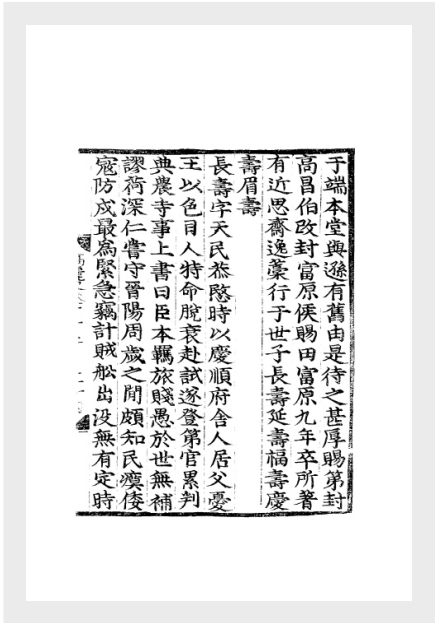 于端本堂與遜有舊由是待之甚厚賜第封
高昌伯改封富原侯賜田富原九年卒所著
有近思齋逸藁行于世子長壽延壽福壽慶
壽眉壽
長壽字天民恭愍時以慶順府舍人居父憂
王以色目人特命脫衰赴試遂登第官累判
典農寺事上書曰臣本羈旅賤愚於世無補
謬荷深仁嘗守晉陽周歲之間頗知民瘼倭
寇防戍最為緊急竊計賊舩出没無有定時